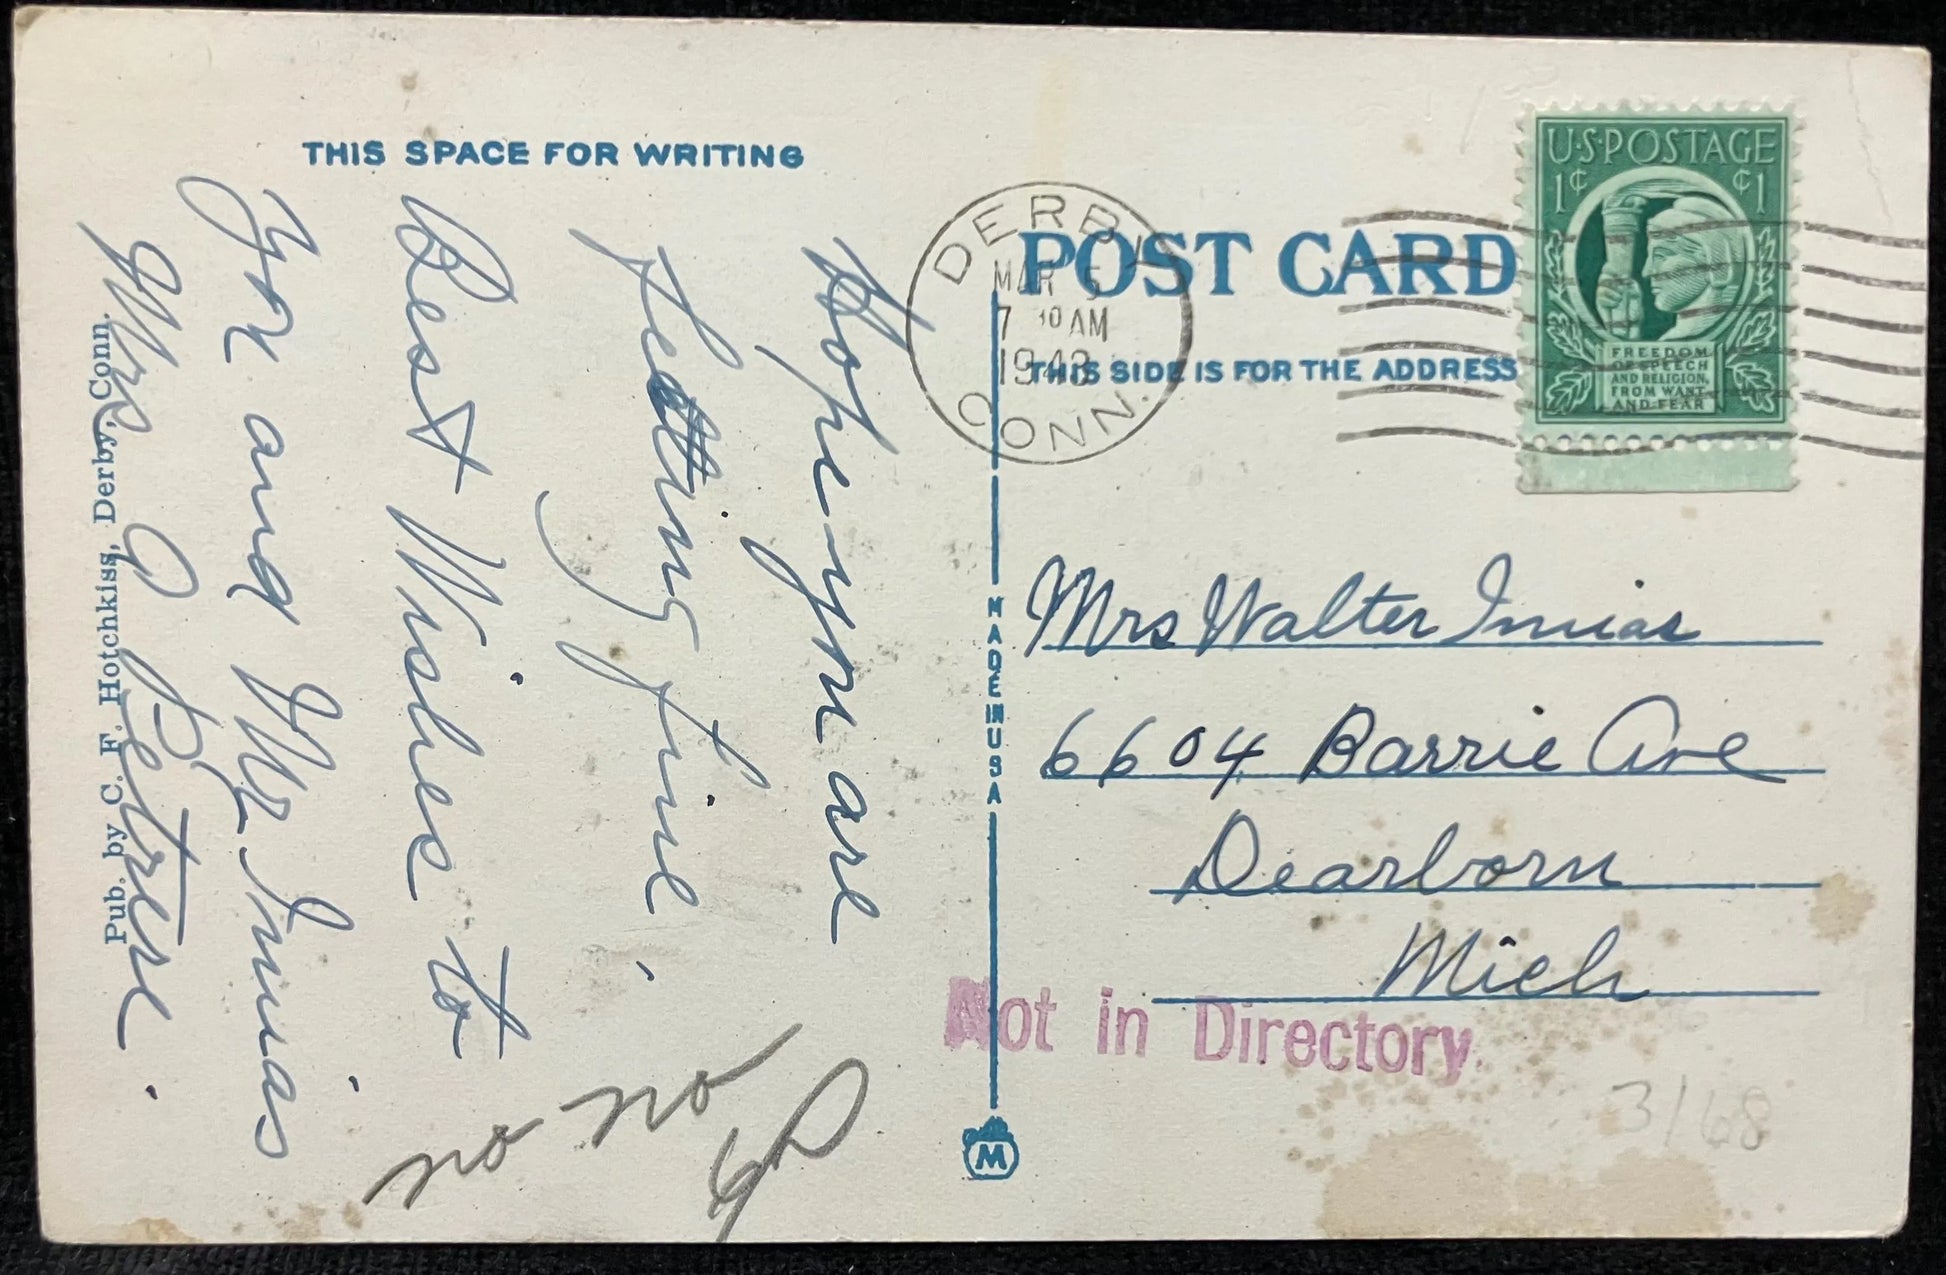 THIS SPACE FOR WRITING
Hope you are
feetting fine.
Best Wishes to
You and Mr Innias
Mrs G Petrere.
Pub. by C. F. Hotchkiss, Derby, Conn.
no no
POST CARD
THIS SIDE IS FOR THE ADDRESS
DERBY
MAR 5
7 30 AM
1943
CONN.
U·S·POSTAGE
1¢ ¢1
FREEDOM
OF SPEECH
AND RELIGION,
FROM WANT
AND FEAR
MADE IN USA
Mrs Walter Innias
6604 Barrie Ave
Dearborn
Mich
Not in Directory
3/68
M